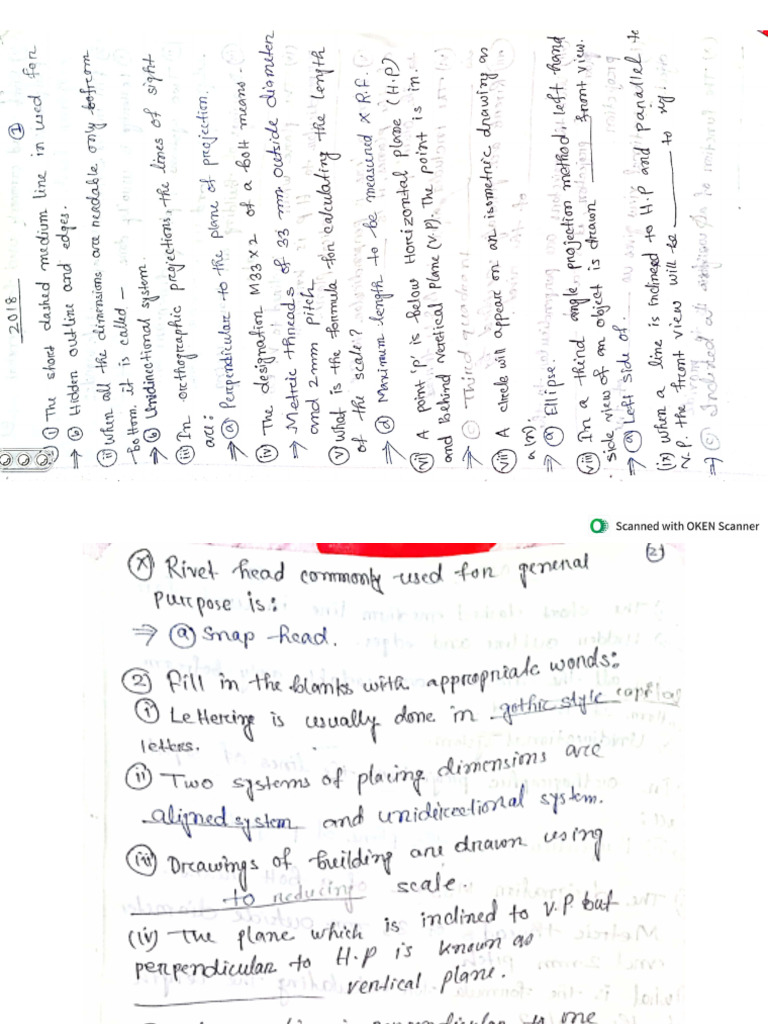 2018
①
① The stont dashed medium line in used for
⇒ ⓑ Hidden outline and edges.
ⓘⓘ When all the dimensions are readable only from
bottom. it is called –
⇒ ⓑ Unidirectional system.
(iii) In orthographic projections, the lines of sight
are:
⇒ ⓐ Perpendicular to the plane of projection.
(iv) The designation M33X2 of a bolt means.
⇒ Metric threads of 33 mm outside diameter
and 2mm pitch
(v) What is the formula for calculating the length
of the scale?
⇒ ⓓ Maximum length to be measured X R.F.
(vi) A point 'P' is below Horizontal plane (H.P)
and behind veretical plane (V.P). The point is in.
⇒ ⓒ Third quadrant
(vii) A circle will appear on an isometric drawing as
a(n):
⇒ ⓐ Ellipse.
(viii) In a third angle projection method, left hand
side view of an object is drawn ______ front view.
⇒ ⓐ Left side of.
(ix) When a line is inclined to H.P and parallel to
V.P. the front view will be ______ to xy.
⇒ ⓒ Inclined at
Scanned with OKEN Scanner
(2)
(X) Rivet head commonly used for general
purpose is:
⇒ ⓐ Snap head.
② Fill in the blanks with appropriate words:
(i) Lettering is usually done in gothic style capital
letters.
(ii) Two systems of placing dimensions are
aligned system and unidirectional system.
(iii) Drawings of building are drawn using
to reducing scale.
(iv) The plane which is inclined to V.P. but
perpendicular to H.P is known as
______ vertical plane.
perpendicular to one